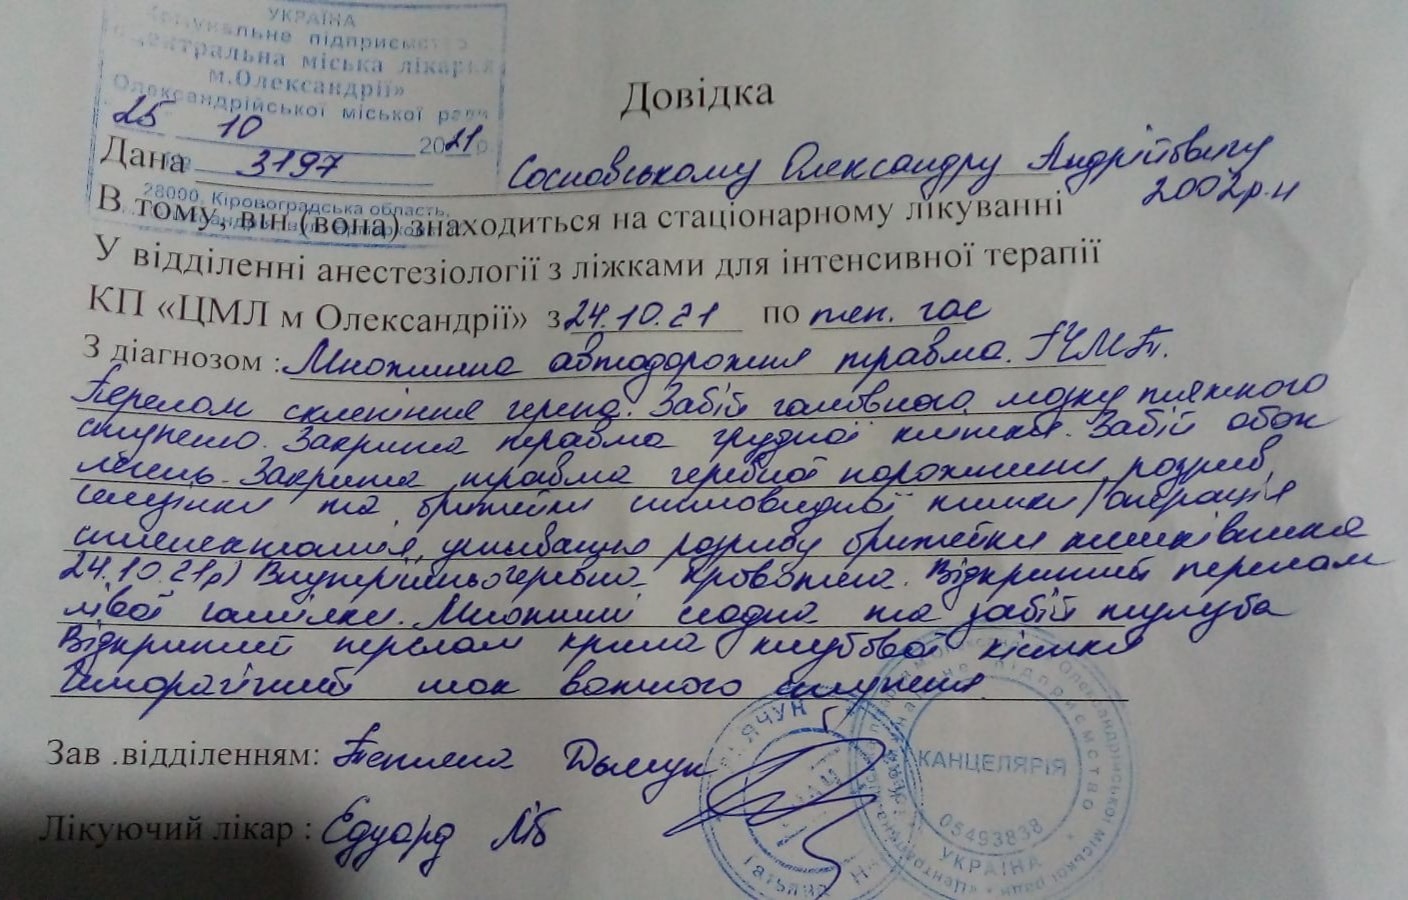 УКРАЇНА
Комунальне підприємство
«Центральна міська лікарня
м.Олександрії»
Олександрійської міської ради
25 10 2021р.
№ 3197
28000, Кіровоградська область,
Довідка
Дана Сосновському Олександру Андрійовичу
2002р.н
В тому, він (вона) знаходиться на стаціонарному лікуванні
У відділенні анестезіології з ліжками для інтенсивної терапії
КП «ЦМЛ м Олександрії» з 24.10.21 по теп. час
З діагнозом : Множинна автодорожня травма. ГЧМТ.
Перелом склепіння черепа. Забій головного мозку тяжкого
ступеню. Закрита травма грудної клітки. Забій обох
легень. Закрита травма черевної порожнини, розрив
селезінки та брижейки сигмовидної кишки /операція
спленектомія, ушивання розриву брижейки кишківника
24.10.21р) Внутрішньочеревна кровотеча. Відкритий перелом
лівої гомілки. Множинні садна та забій тулуба
Відкритий перелом крила клубової кістки
Геморагічний шок важкого ступеня.
Зав .відділенням: Тетяна
Лікуючий лікар : Едуард
КАНЦЕЛЯРІЯ
05493838
УКРАЇНА